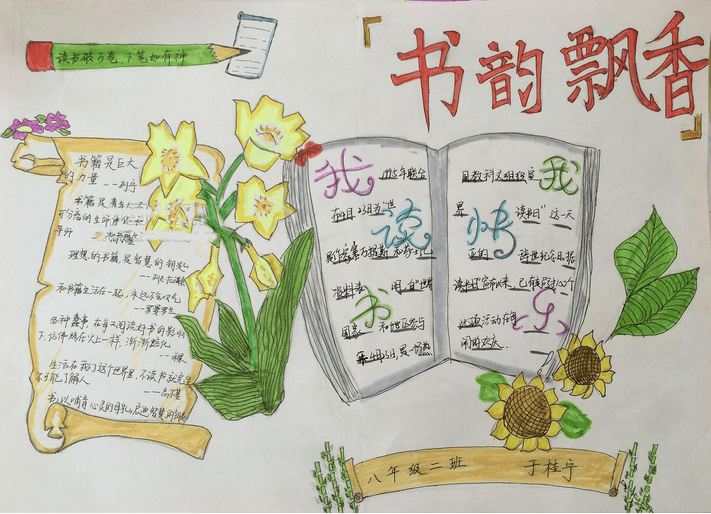 读书破万卷 下笔如有神
书韵飘香
书籍是巨大
的力量 ——列宁
书籍是青年人不
可分离的生命伴侣和
导师
理想的书籍是智慧的钥匙
和书籍生活在一起，永远不会叹气
——罗曼罗兰
各种蠢事，在每天阅读好书的影响
下，仿佛烤在火上一样，渐渐熔化
生活在我们这个世界里，不读书就完全
不可能了解人
——高尔基
我
1995年联合
在4月23日为“世
读
用“世
书
国家 和地区参与
第4月23日，是
国教科文组织宣
我
界 读书日”这一天
快
读书日”宣布以来，已有超过100个
乐
此项活动在每
闹的欢庆.
八年级二班 于桂宁